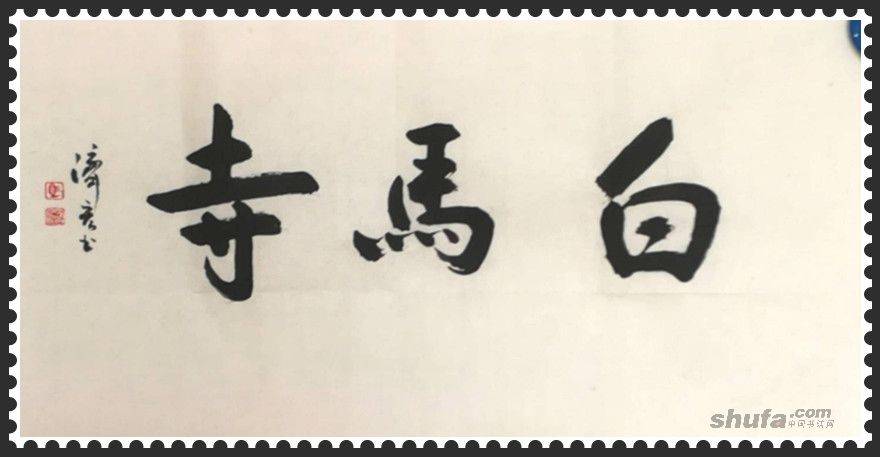 白馬寺
濤彥书
shufa.com
中国书法网